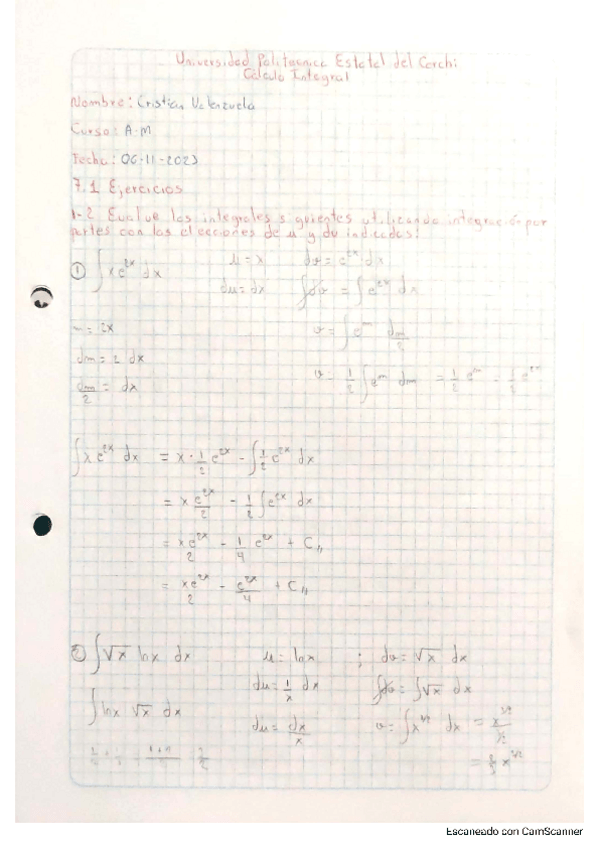 Universidad Politecnica Estatal del Carchi
Cálculo Integral
Nombre: Cristian Valenzuela
Curso: A-M
Fecha: 06-11-2023
7.1 Ejercicios
1-2 Evalue las integrales siguientes utilizando integración por
partes con las elecciones de u y dv indicadas:
① ∫ x e^{2x} dx   u = x   dv = e^{2x} dx
du = dx   ∫dv = ∫e^{2x} dx
m = 2x   v = ∫e^m dm/2
dm = 2 dx
dm/2 = dx   v = 1/2 ∫e^m dm = 1/2 e^m = 1/2 e^{2x}
∫x e^{2x} dx = x · 1/2 e^{2x} - ∫1/2 e^{2x} dx
= x e^{2x}/2 - 1/2 ∫e^{2x} dx
= x e^{2x}/2 - 1/4 e^{2x} + C //
= x e^{2x}/2 - e^{2x}/4 + C //
② ∫√x ln x dx   u = ln x ; dv = √x dx
du = 1/x dx   ∫dv = ∫√x dx
∫ln x √x dx   du = dx/x   v = ∫x^{1/2} dx
Escaneado con CamScanner